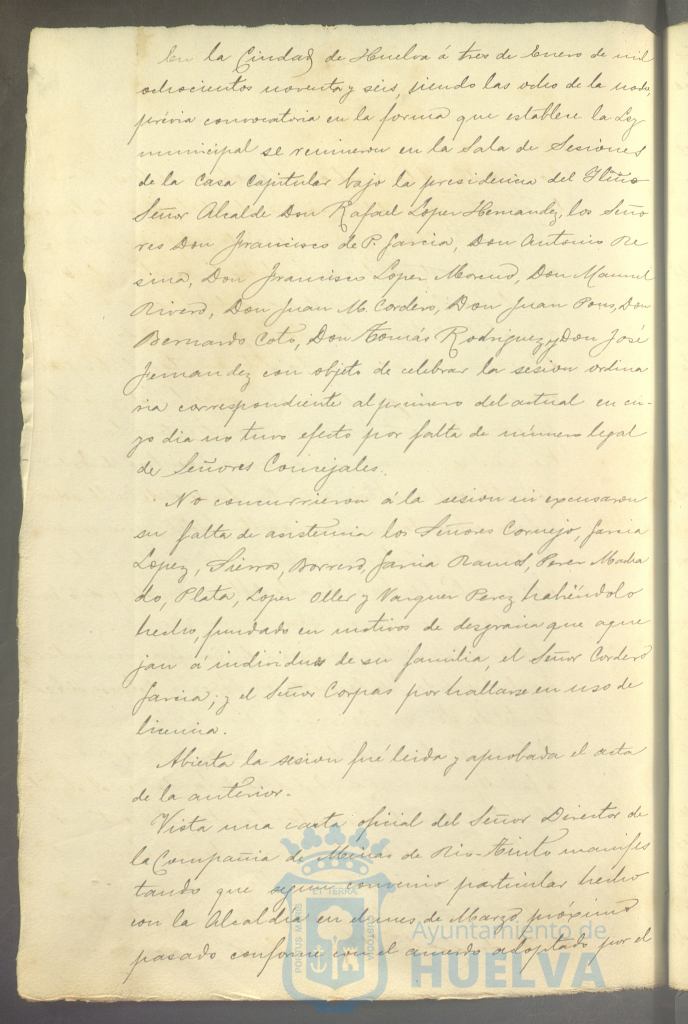 En la Ciudad de Huelva á tres de Enero de mil
ochocientos noventa y seis, siendo las ocho de la noche,
prévia convocatoria en la forma que establece la Ley
municipal se reunieron en la Sala de Sesiones
de la Casa Capitular bajo la presidencia del Iltmo
Señor Alcalde Don Rafael Lopez Hernandez, los Seño
res Don Francisco de P. Garcia, Don Antonio Re
sina, Don Francisco Lopez Moreno, Don Manuel
Rivero, Don Juan M. Cordero, Don Juan Pons, Don
Bernardo Coto, Don Tomás Rodriguez y Don José
Fernandez con objeto de celebrar la sesion ordina
ria correspondiente al primero del actual en cu-
yo dia no tuvo efecto por falta de número legal
de Señores Concejales.
No concurrieron á la sesion ni excusaron
su falta de asistencia los Señores Cornejo, Garcia
Lopez, Sierra, Borrero, Garcia Ramos, Perez Machu
do, Plata, Lopez Oller y Vazquez Perez habiéndolo
hecho, fundado en motivos de desgracia que aque
jan á individuos de su familia, el Señor Cordero
Garcia; y el Señor Corpas por hallarse en uso de
licencia.
Abierta la sesion fué leida y aprobada el acta
de la anterior.
Vista una carta oficial del Señor Director de
la Compañia de Minas de Rio-Tinto manifes
tando que segun convenio particular hecho
con la Alcaldia en el mes de Marzo próximo
pasado conforme con el acuerdo adoptado por el
PORTUS MARIS
ET TERRÆ
CUSTODIA
Ayuntamiento de
HUELVA